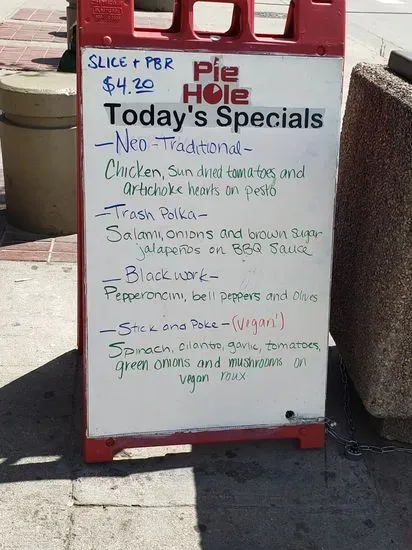 SLICE + PBR
$4.20
Pie
Hole
Today's Specials
- Neo-Traditional-
Chicken, Sun dried tomatoes, and
artichoke hearts on pesto
- Trash Polka-
Salami, onions and brown sugar
jalapeños on BBQ Sauce
- Blackwork-
Pepperoncini, bell peppers and Olives
- Stick and Poke - (vegan!)
Spinach, cilantro, garlic, tomatoes,
green onions and mushrooms on
vegan roux